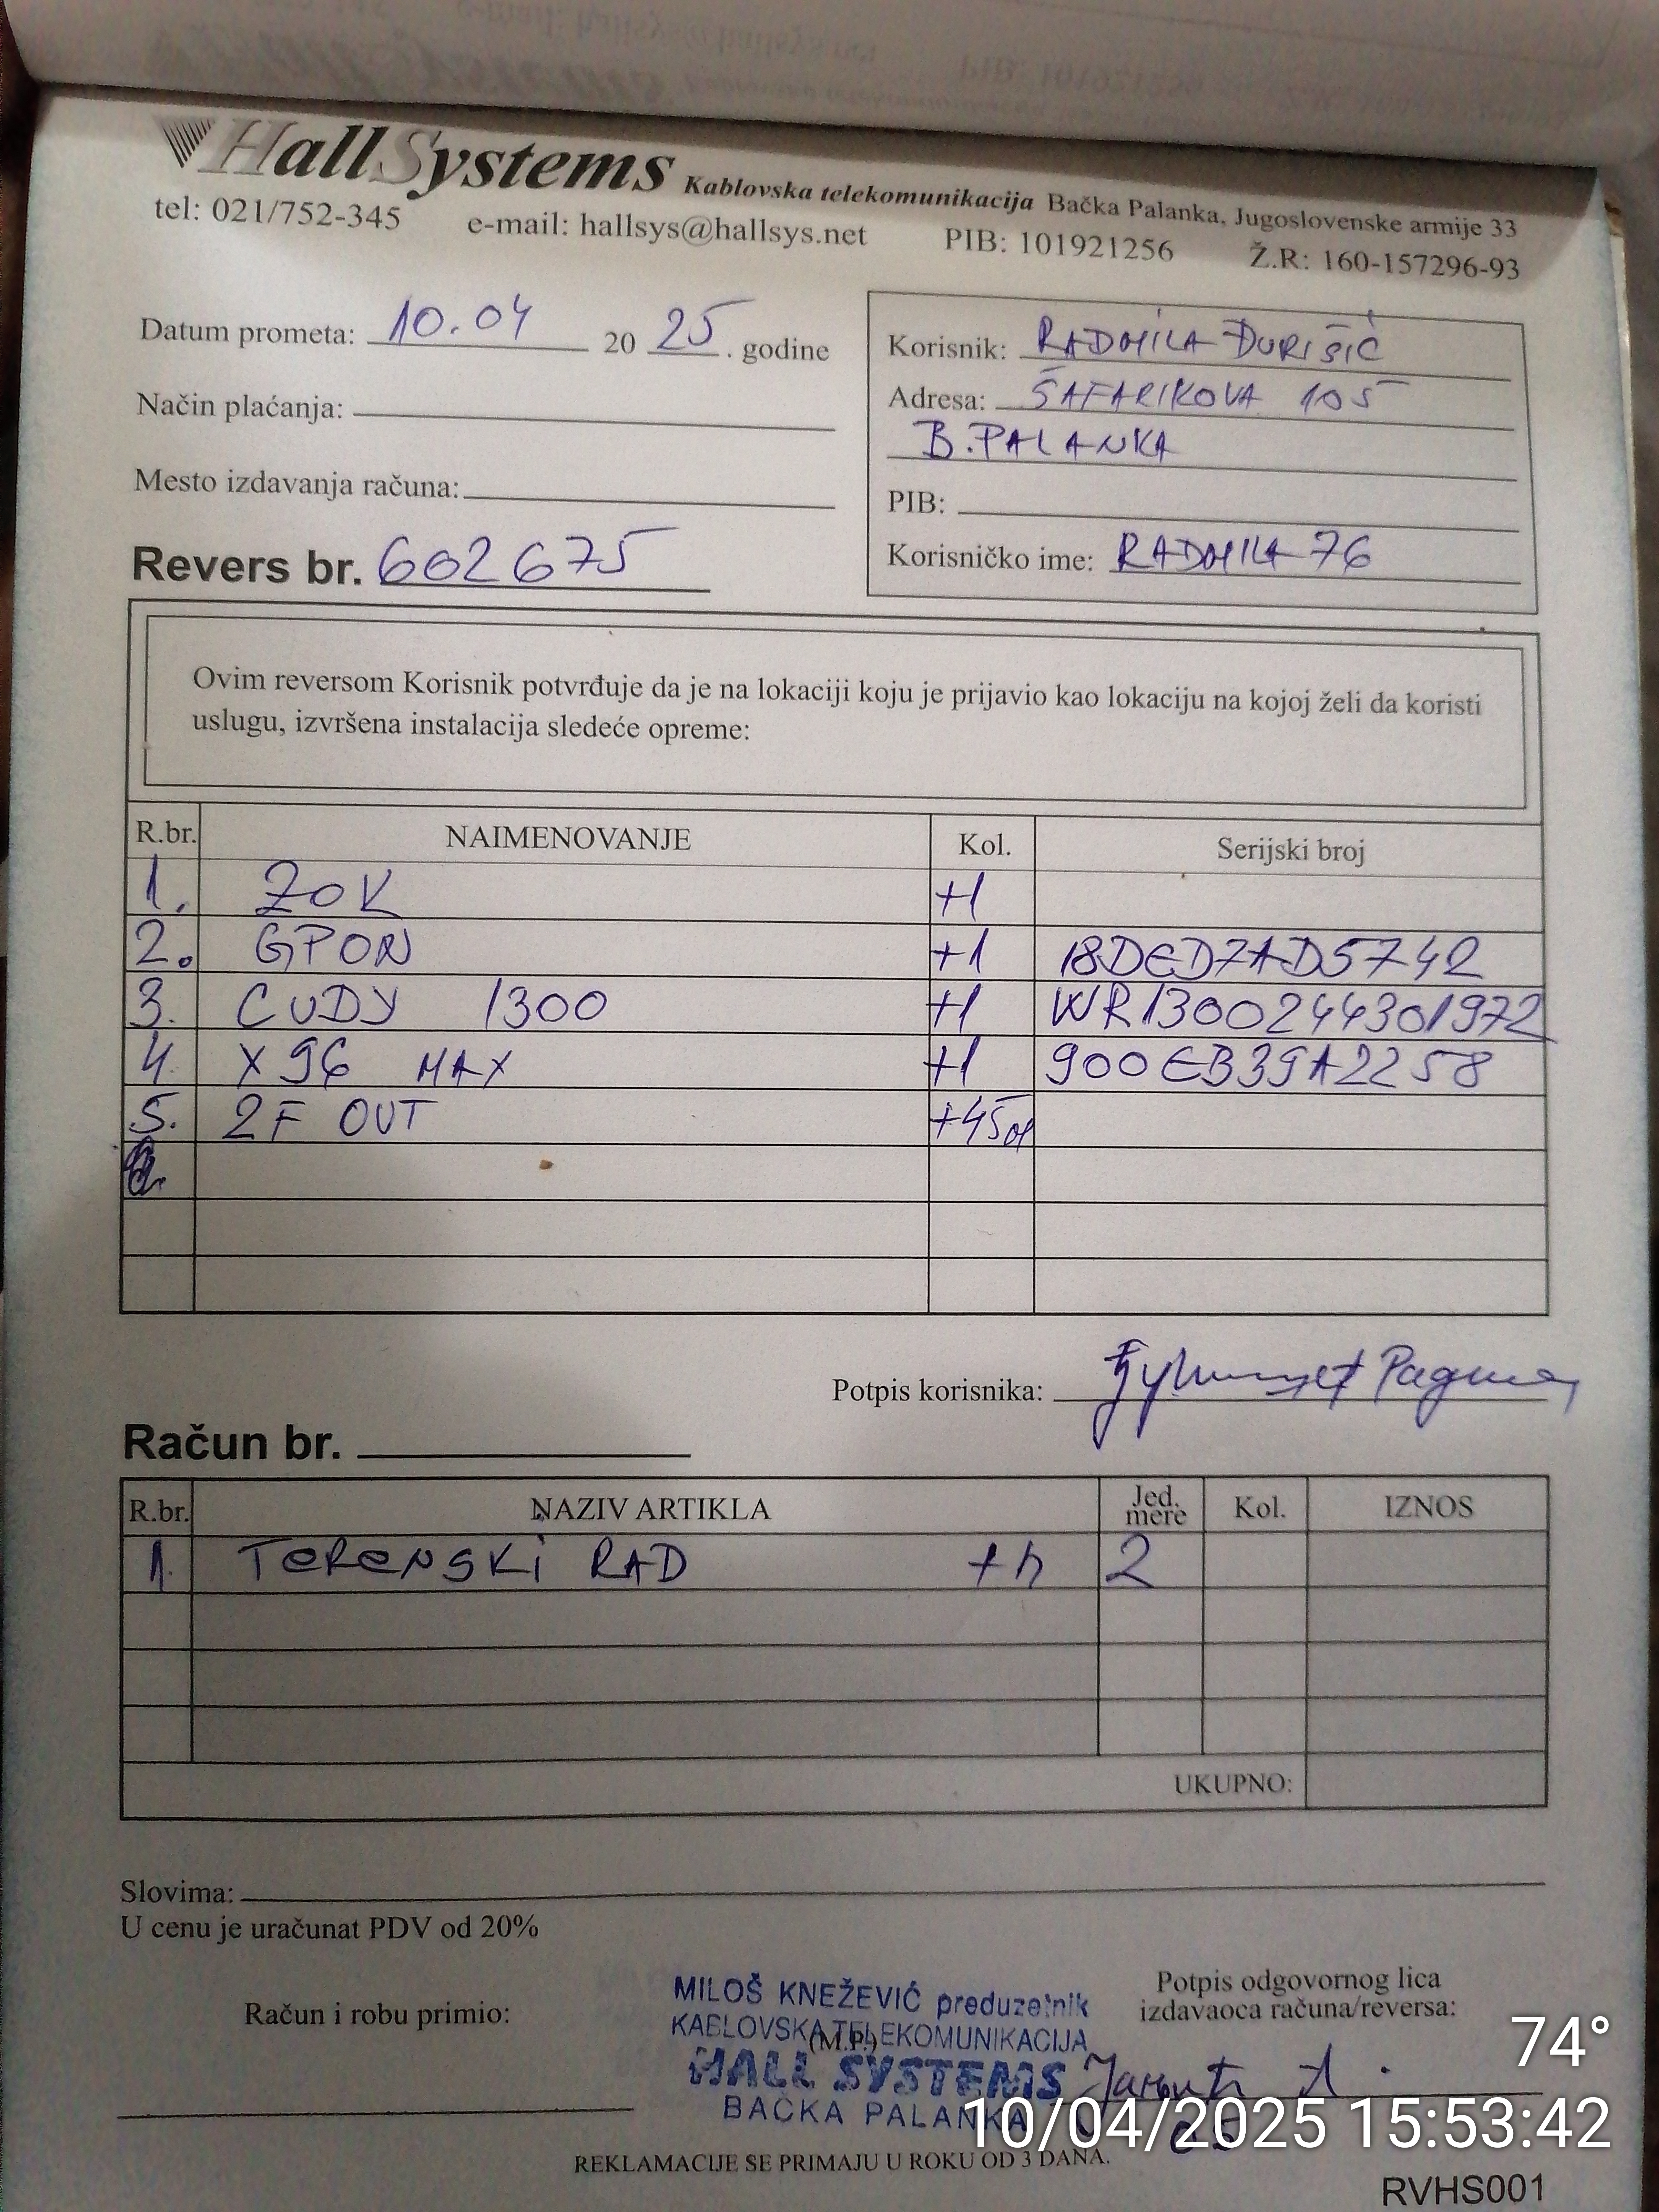 HallSystems Kablovska telekomunikacija Bačka Palanka, Jugoslovenske armije 33
tel: 021/752-345 e-mail: hallsys@hallsys.net PIB: 101921256 Ž.R: 160-157296-93
Datum prometa: 10.04 2025. godine
Način plaćanja:
Mesto izdavanja računa:
Revers br. 602675
Korisnik: RADMILA ĐURIŠIĆ
Adresa: ŠAFARIKOVA 105
B.PALANKA
PIB:
Korisničko ime: RADMILA 76
Ovim reversom Korisnik potvrđuje da je na lokaciji koju je prijavio kao lokaciju na kojoj želi da koristi
uslugu, izvršena instalacija sledeće opreme:
R.br. NAIMENOVANJE Kol. Serijski broj
1. ZOK +1
2. GPON +1 18DED7AD5742
3. CUDY 1300 +1 WR1300244301972
4. X96 MAX +1 900EB39A2258
5. 2F OUT +45m
Potpis korisnika:
Račun br.
R.br. NAZIV ARTIKLA Jed. mere Kol. IZNOS
1. TERENSKI RAD +h 2
UKUPNO:
Slovima:
U cenu je uračunat PDV od 20%
Račun i robu primio:
MILOŠ KNEŽEVIĆ preduzetnik
KABLOVSKA TELEKOMUNIKACIJA
(M.P.)
HALL SYSTEMS
BAČKA PALANKA
Potpis odgovornog lica
izdavaoca računa/reversa:
74°
10/04/2025 15:53:42
REKLAMACIJE SE PRIMAJU U ROKU OD 3 DANA.
RVHS001